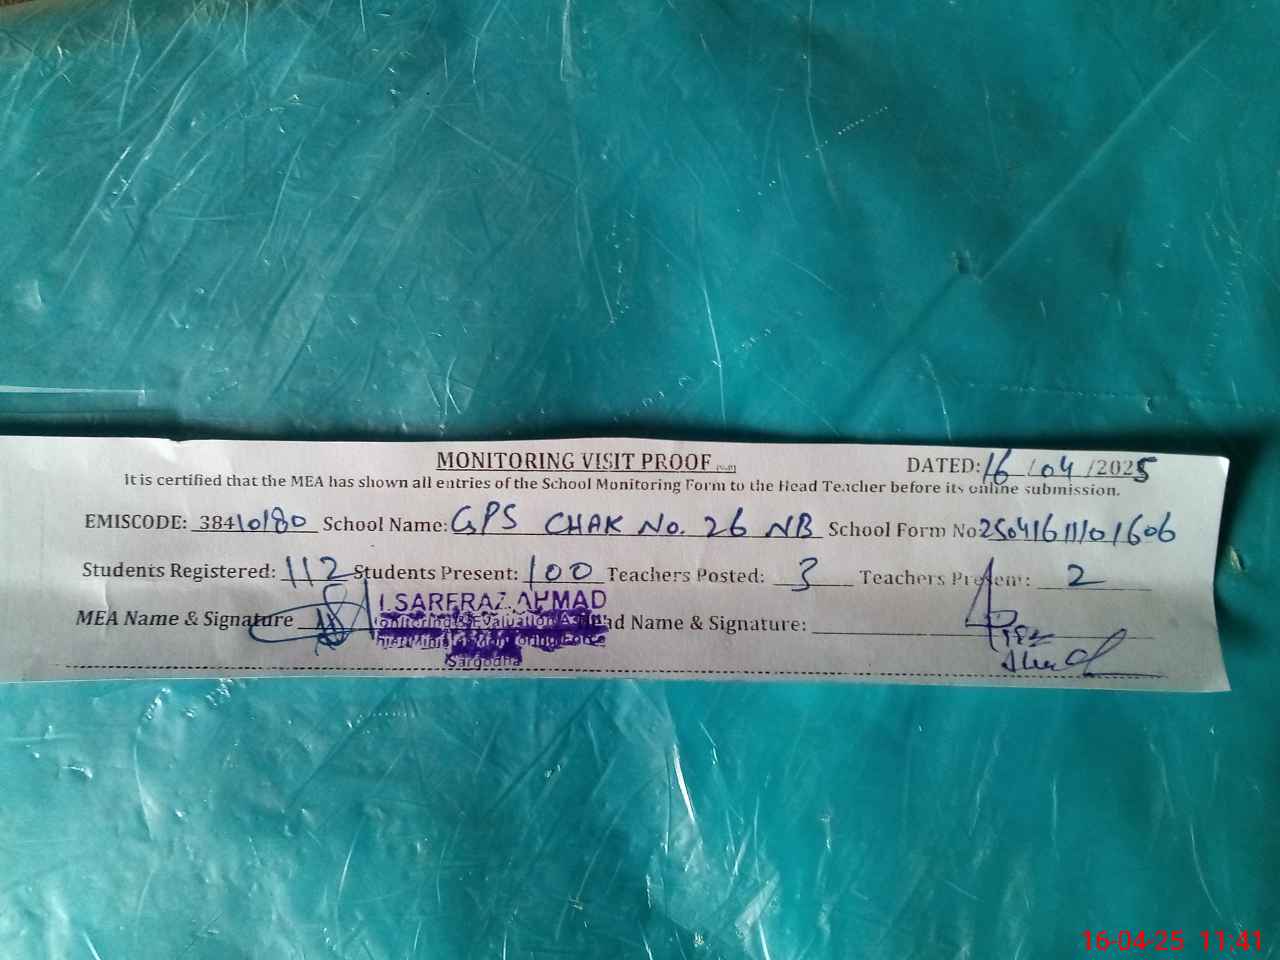 MONITORING VISIT PROOF
DATED: 16/04/2025
It is certified that the MEA has shown all entries of the School Monitoring Form to the Head Teacher before its online submission.
EMISCODE: 38410180 School Name: GPS CHAK No. 26 NB School Form No 25041611101606
Students Registered: 112 Students Present: 100 Teachers Posted: 3 Teachers Present: 2
MEA Name & Signature SARFRAZ AHMAD Head Name & Signature:
Monitoring & Evaluation
Force
Sargodha
16-04-25 11:41